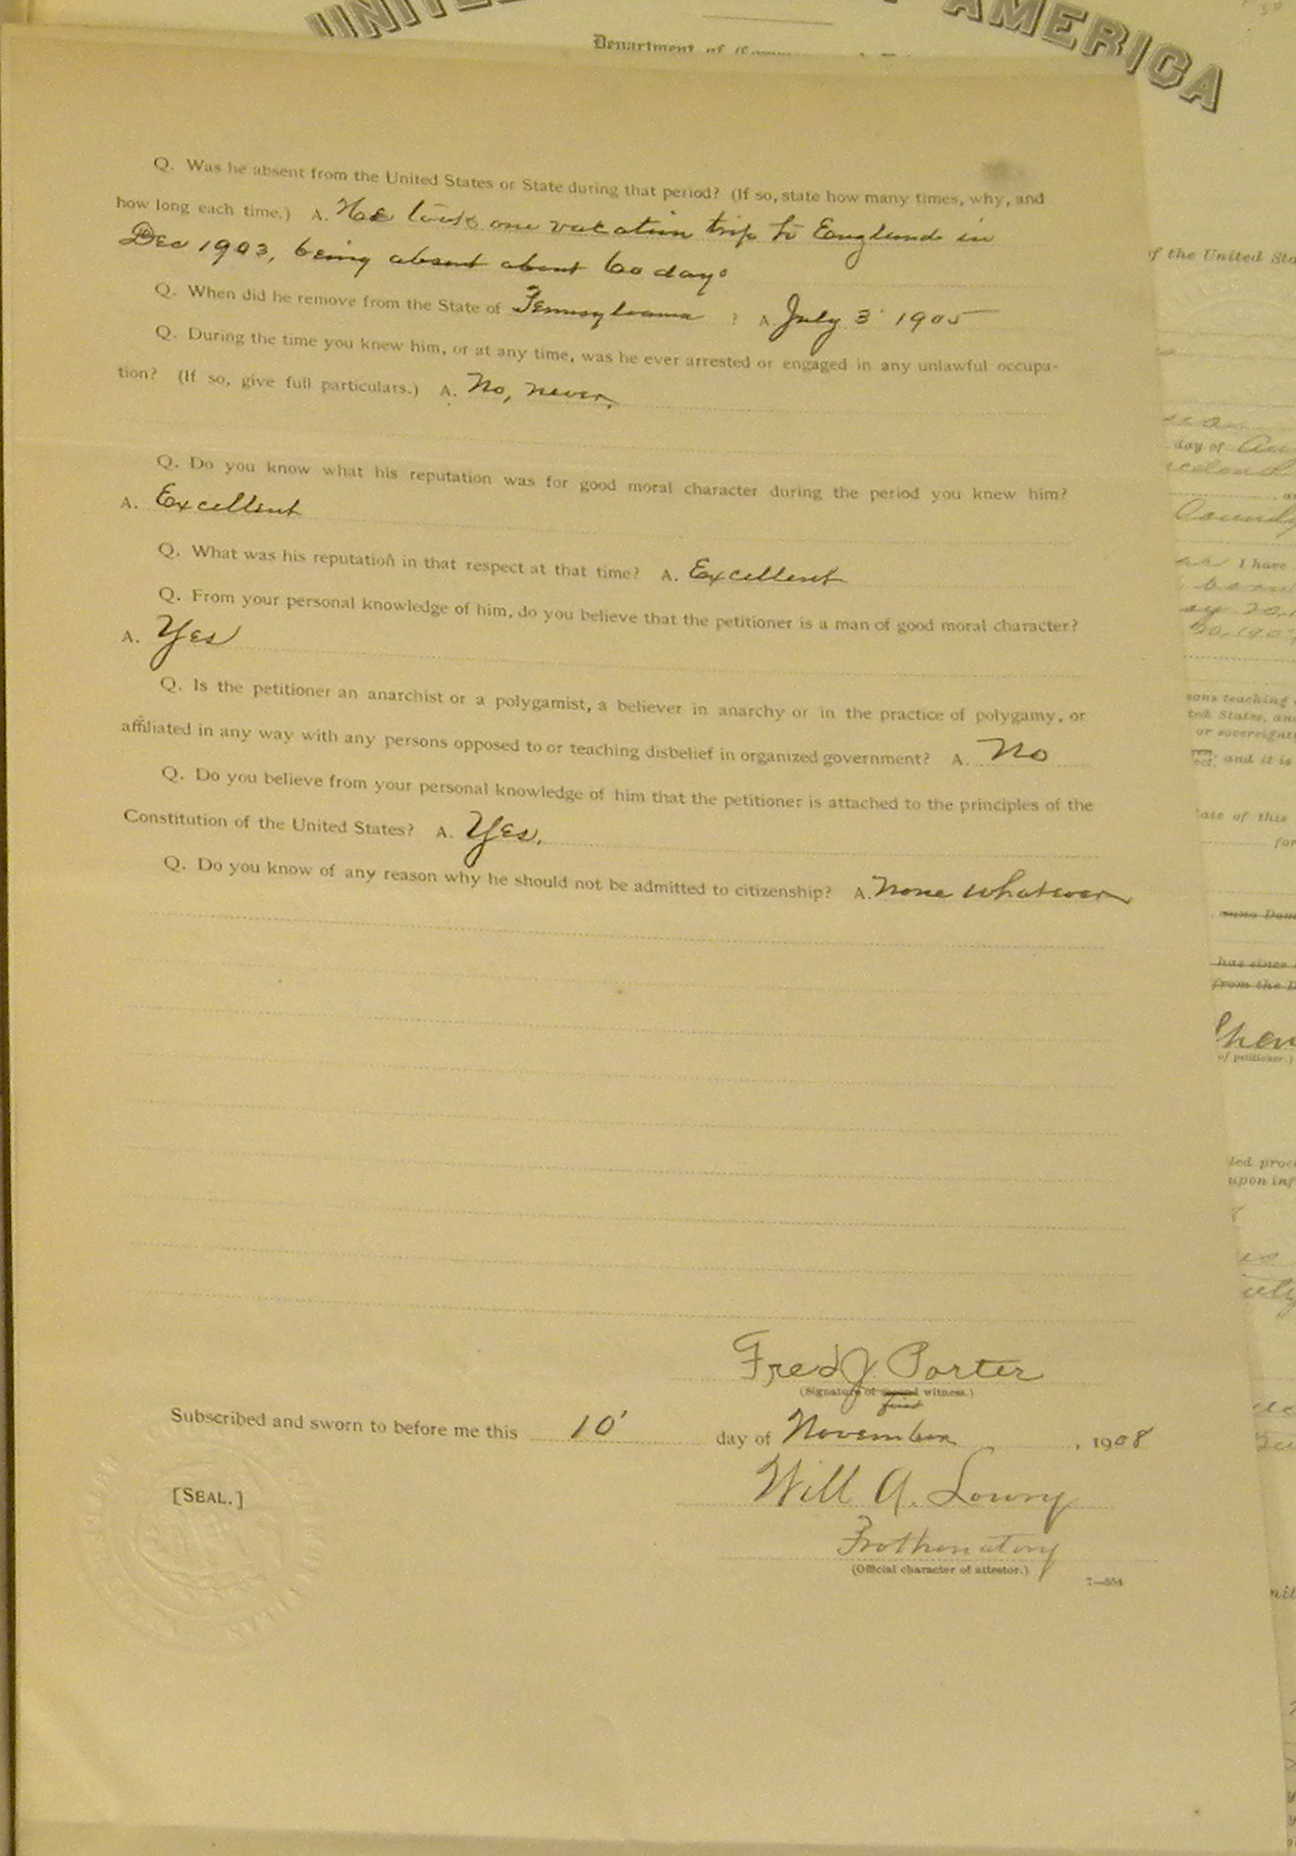 UNITE AMERICA
Department of Com
Q. Was he absent from the United States or State during that period? (If so, state how many times, why, and
how long each time.) A. He took one vacation trip to England in
Dec 1903, being absent about 60 days
Q. When did he remove from the State of Pennsylvania ? A. July 3 1905
Q. During the time you knew him, or at any time, was he ever arrested or engaged in any unlawful occupa-
tion? (If so, give full particulars.) A. No, never.
Q. Do you know what his reputation was for good moral character during the period you knew him?
A. Excellent
Q. What was his reputation in that respect at that time? A. Excellent
Q. From your personal knowledge of him, do you believe that the petitioner is a man of good moral character?
A. Yes
Q. Is the petitioner an anarchist or a polygamist, a believer in anarchy or in the practice of polygamy, or
affiliated in any way with any persons opposed to or teaching disbelief in organized government? A. No
Q. Do you believe from your personal knowledge of him that the petitioner is attached to the principles of the
Constitution of the United States? A. Yes.
Q. Do you know of any reason why he should not be admitted to citizenship? A. None whatever
Fred J. Porter
(Signature of second witness.)
first
Subscribed and sworn to before me this 10' day of November , 1908
[SEAL.]
Will A. Lowry
Prothonotary
(Official character of attestor.)
7—554
of the United Sta
day of
County
I have
born
sons teaching
ted States, and
or sovereignty
and it is
ate of this
for
has since
from the D
of petitioner.)
led proc
upon inf